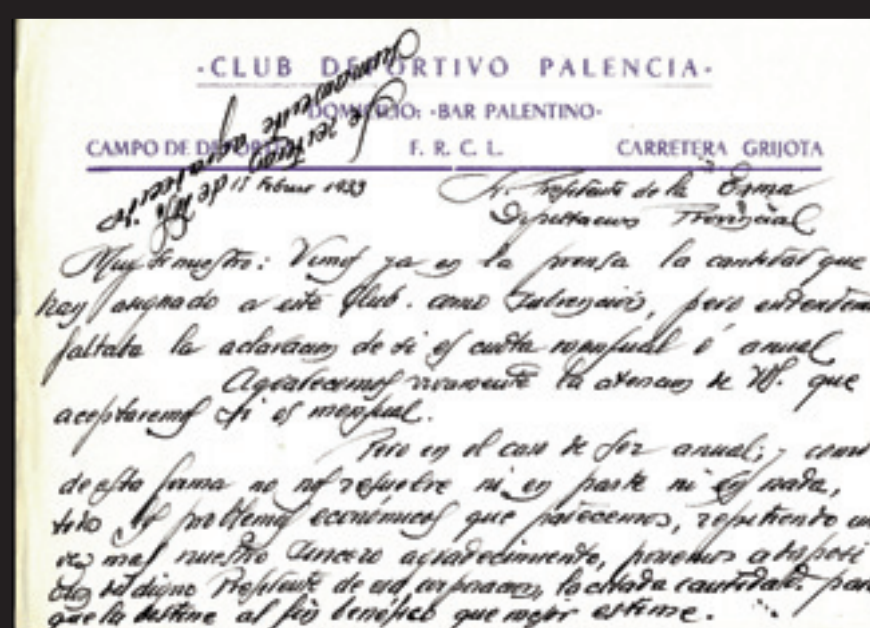 -CLUB DEPORTIVO PALENCIA-
DOMICILIO: -BAR PALENTINO-
CAMPO DE DEPORTES F. R. C. L. CARRETERA GRIJOTA
15 Febrero 1933 Sr. Presidente de la Exma
Diputacion Provincial
Muy Sr nuestro: Vimos ya en la prensa la cantidad que
hay asignado a este Club. como Subvención, pero
faltaba la aclaracion de si es cuota mensual ó anual
Agradecemos vivamente la atencion de VS. que
aceptaremos si es mensual.
Pero en el caso de ser anual; y como
de esta forma no nos resuelve ni en parte ni en nada,
los problemas económicos que padecemos, repitiendo una
vez mas nuestro sincero agradecimiento, ponemos a
del digno Presidente de esa corporacion, la citada cantidad. para
que la destine al fin benéfico que mejor estime.
Se reiteran de VS.